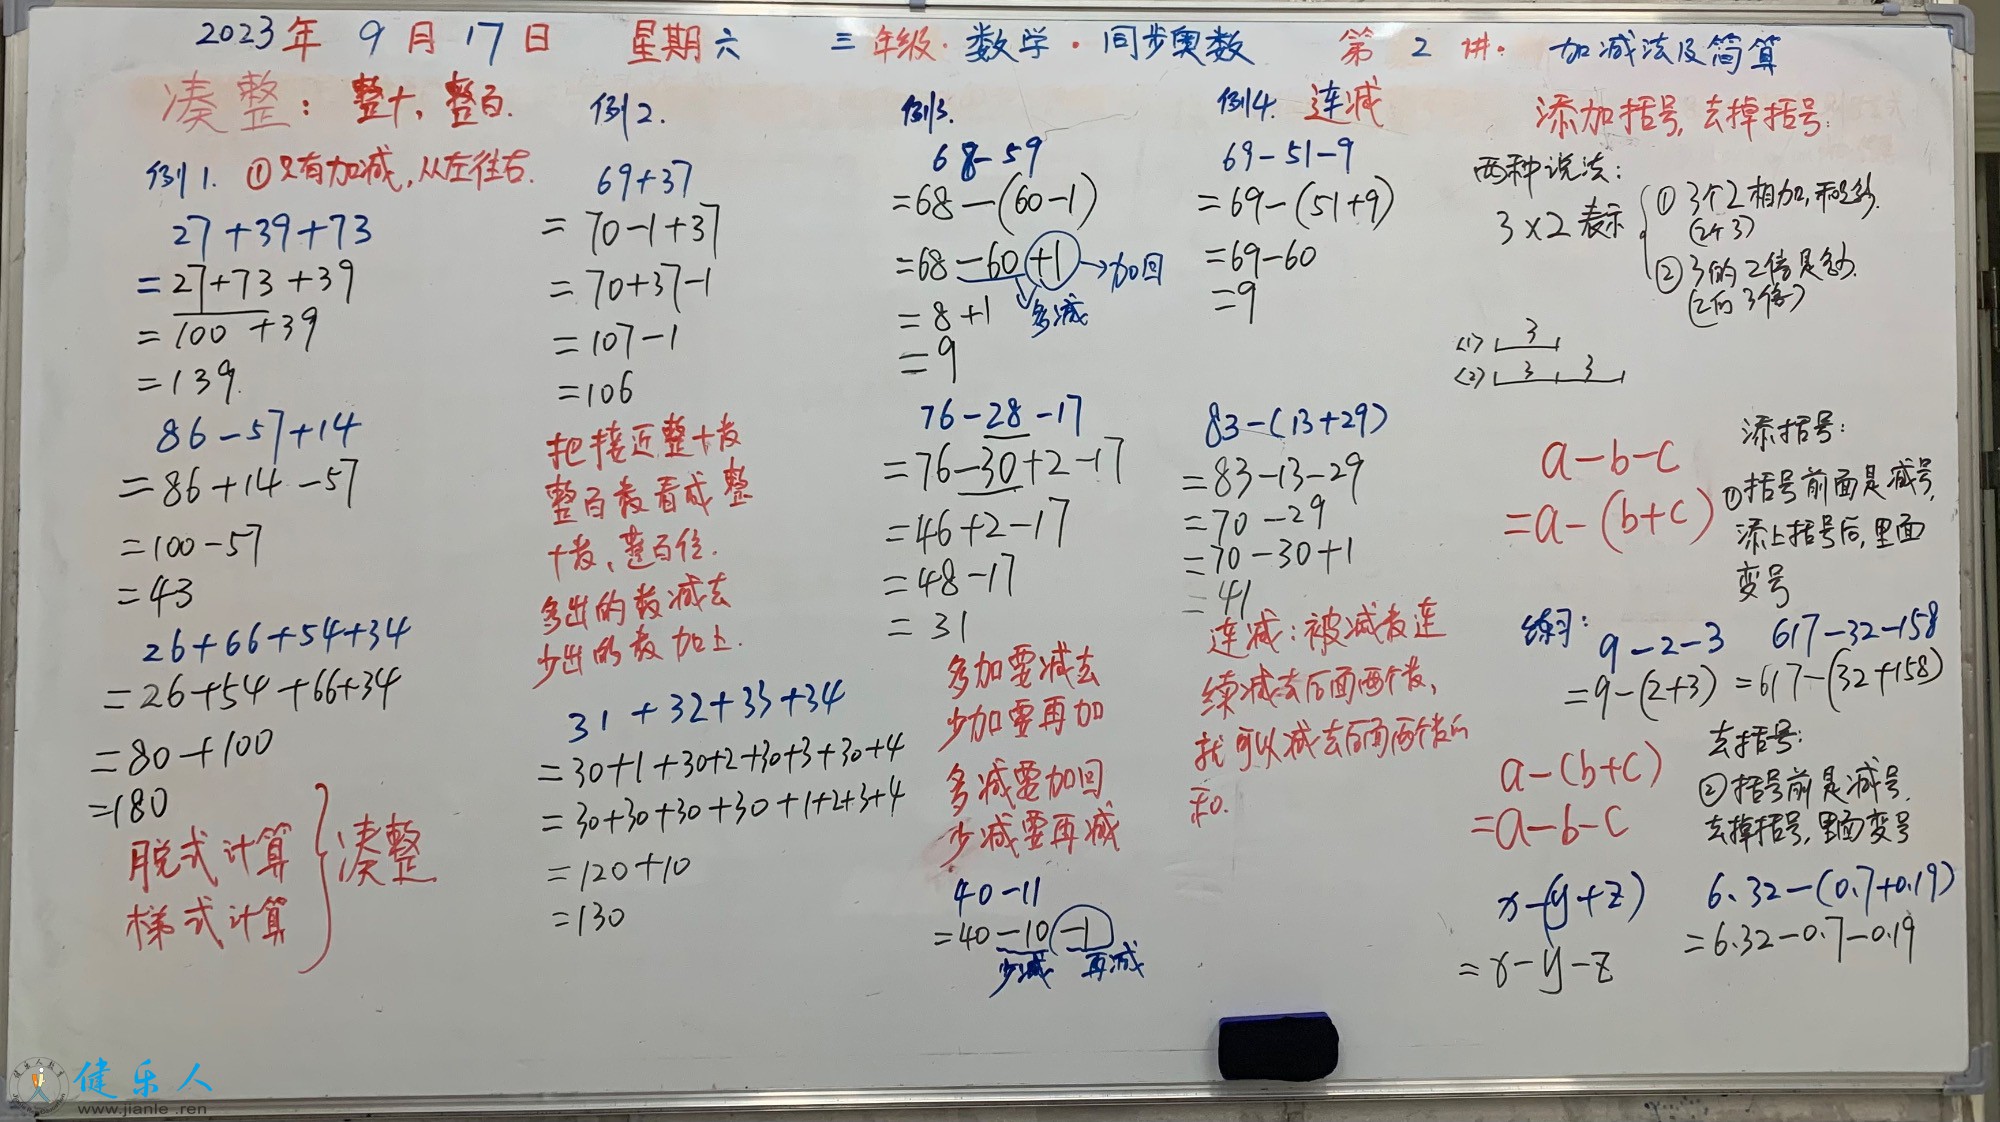 2023年 9月17日 星期六 三年级·数学·同步奥数 第2讲: 加减法及简算
凑整: 整十, 整百.
例1. ①只有加减,从左往右.
27+39+73
=27+73+39
=100+39
=139.
86-57+14
=86+14-57
=100-57
=43
26+66+54+34
=26+54+66+34
=80+100
=180
脱式计算
梯式计算
凑整.
例2.
69+37
=70-1+37
=70+37-1
=107-1
=106
把接近整十数
整百数看成整
十数、整百位.
多出的数减去
少出的数加上.
31+32+33+34
=30+1+30+2+30+3+30+4
=30+30+30+30+1+2+3+4
=120+10
=130
例3.
68-59
=68-(60-1)
=68-60+1→加回
多减
=8+1
=9
76-28-17
=76-30+2-17
=46+2-17
=48-17
=31
多加要减去
少加要再加
多减要加回
少减要再减
40-11
=40-10-1
少减 再减
例4. 连减
69-51-9
=69-(51+9)
=69-60
=9
83-(13+29)
=83-13-29
=70-29
=70-30+1
=41
连减:被减数连
续减去后面两个数,
就可以减去后面两个数的
和.
添加括号,去掉括号:
两种说法:
3×2表示
①3个2相加,和是多少.
(2个3)
②3的2倍是多少.
(2的3倍)
(1) 3
(2) 3 3
a-b-c
=a-(b+c)
添括号:
①括号前面是减号,
添上括号后,里面
变号
练习:
9-2-3
=9-(2+3)
617-32-158
=617-(32+158)
a-(b+c)
=a-b-c
去括号:
②括号前是减号,
去掉括号,里面变号
x-(y+z)
=x-y-z
6.32-(0.7+0.19)
=6.32-0.7-0.19
健乐人
www.jianle.ren